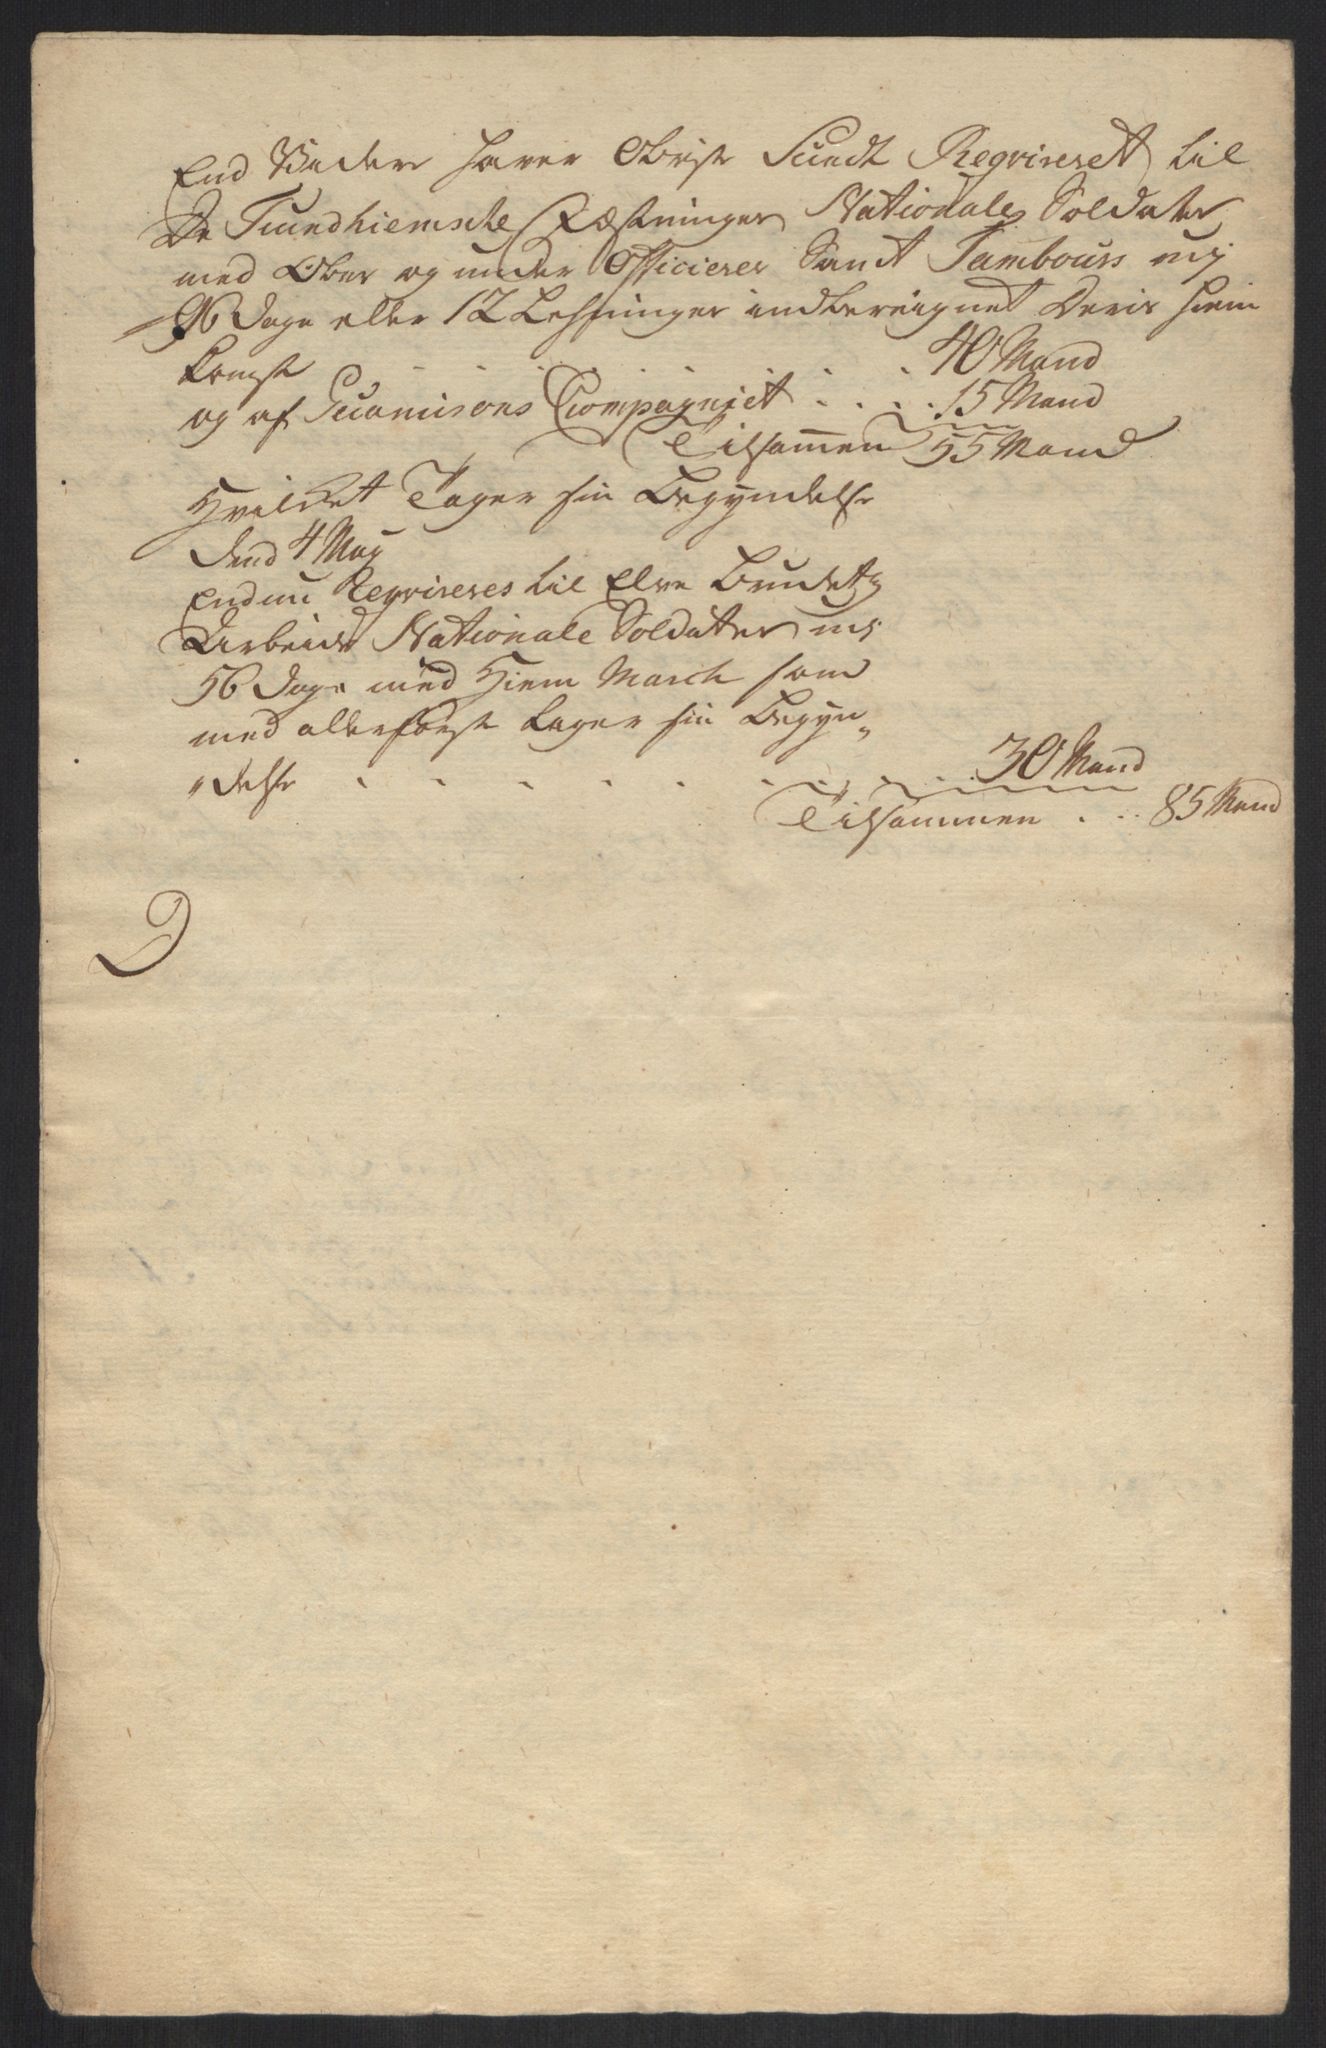 End Videre haver Obrist Sundt Reqvireret til
De Trundhiemsche Fæstninger Nationale Soldater
med Ober og under Officierer Samt Tambours udj
96 Dage eller 12 Lehsninger indbereignet Deris hiem
komst . . . . . . . 40 Mand
og af Guarnisons Compagniet . . . . 15 Mand
Tilsamen 55 Mand
Hvilket Tager sin Begyndelse
dend 4 May
Endnu Reqvireres til Elve Brudets
Arbeide Nationale Soldater udj
56 Dage med Hiem March som
med allerførst tager sin Begyn„
„delse . . . . . . . . 30 Mand
Tilsammen . . . 85 Mand
D